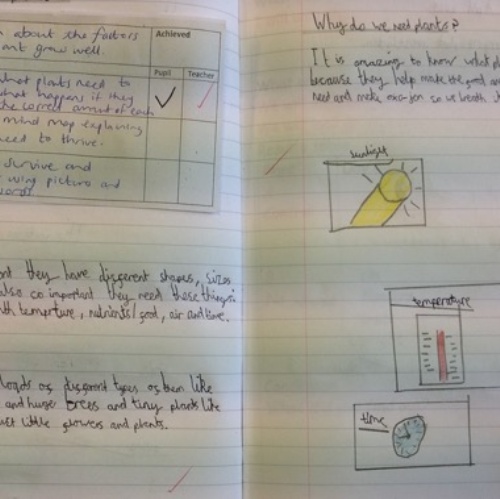 about the factors
ant grow well.
Achieved
Pupil
Teacher
what plants need to
what happens if they
the correct amount of each
mind map explaining
need to thrive.
survive and
wing picture and
words
ont they have different shapes, sizes
also so important they need these things:
temprture, nutrients/food, air and time.
loads of different types of them like
and huge trees and tiny plants like
just little flowers and plants.
Why do we need plants?
It is amazing to know what pl
because they help make the food and
need and make oxa-jen so we breath it
sunlight
temperature
time